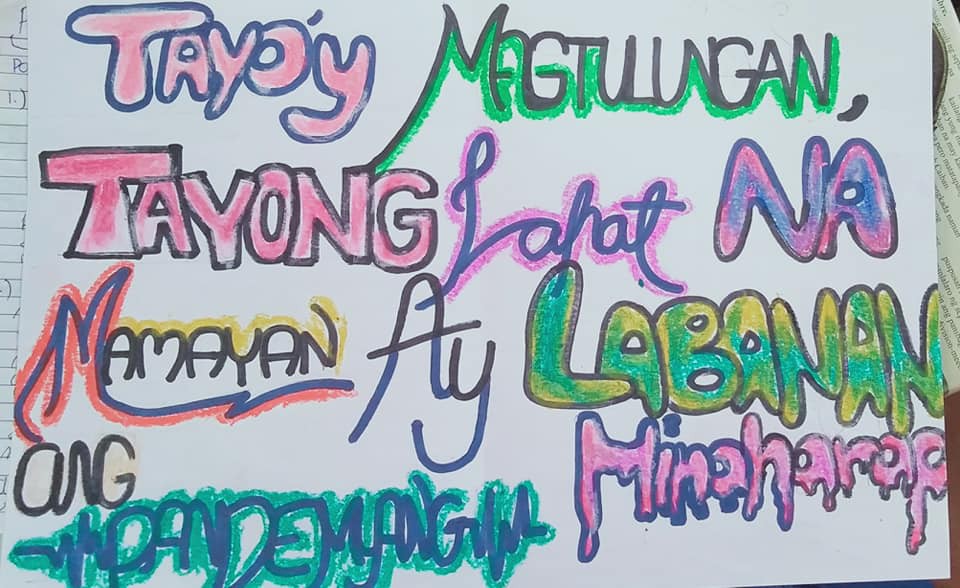 TAYO'Y MAGTULUNGAN,
TAYONG Lahat NA
MAMAYAN Ay LABANAN
ANG Minaharap
PANDEMYANG